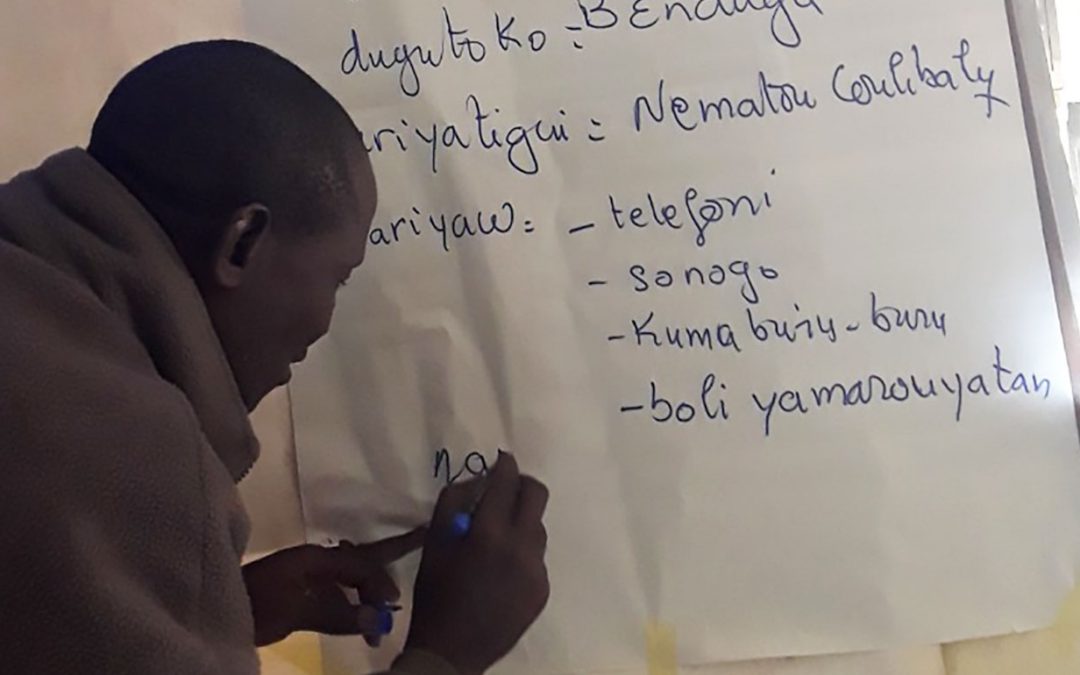 dugutoko = Bendugu
riyatigui = Nematou Coulibaly
ariyaw = - telefɔni
- sonogo
- Kuma buru-buru
- boli yamarouyatan
na